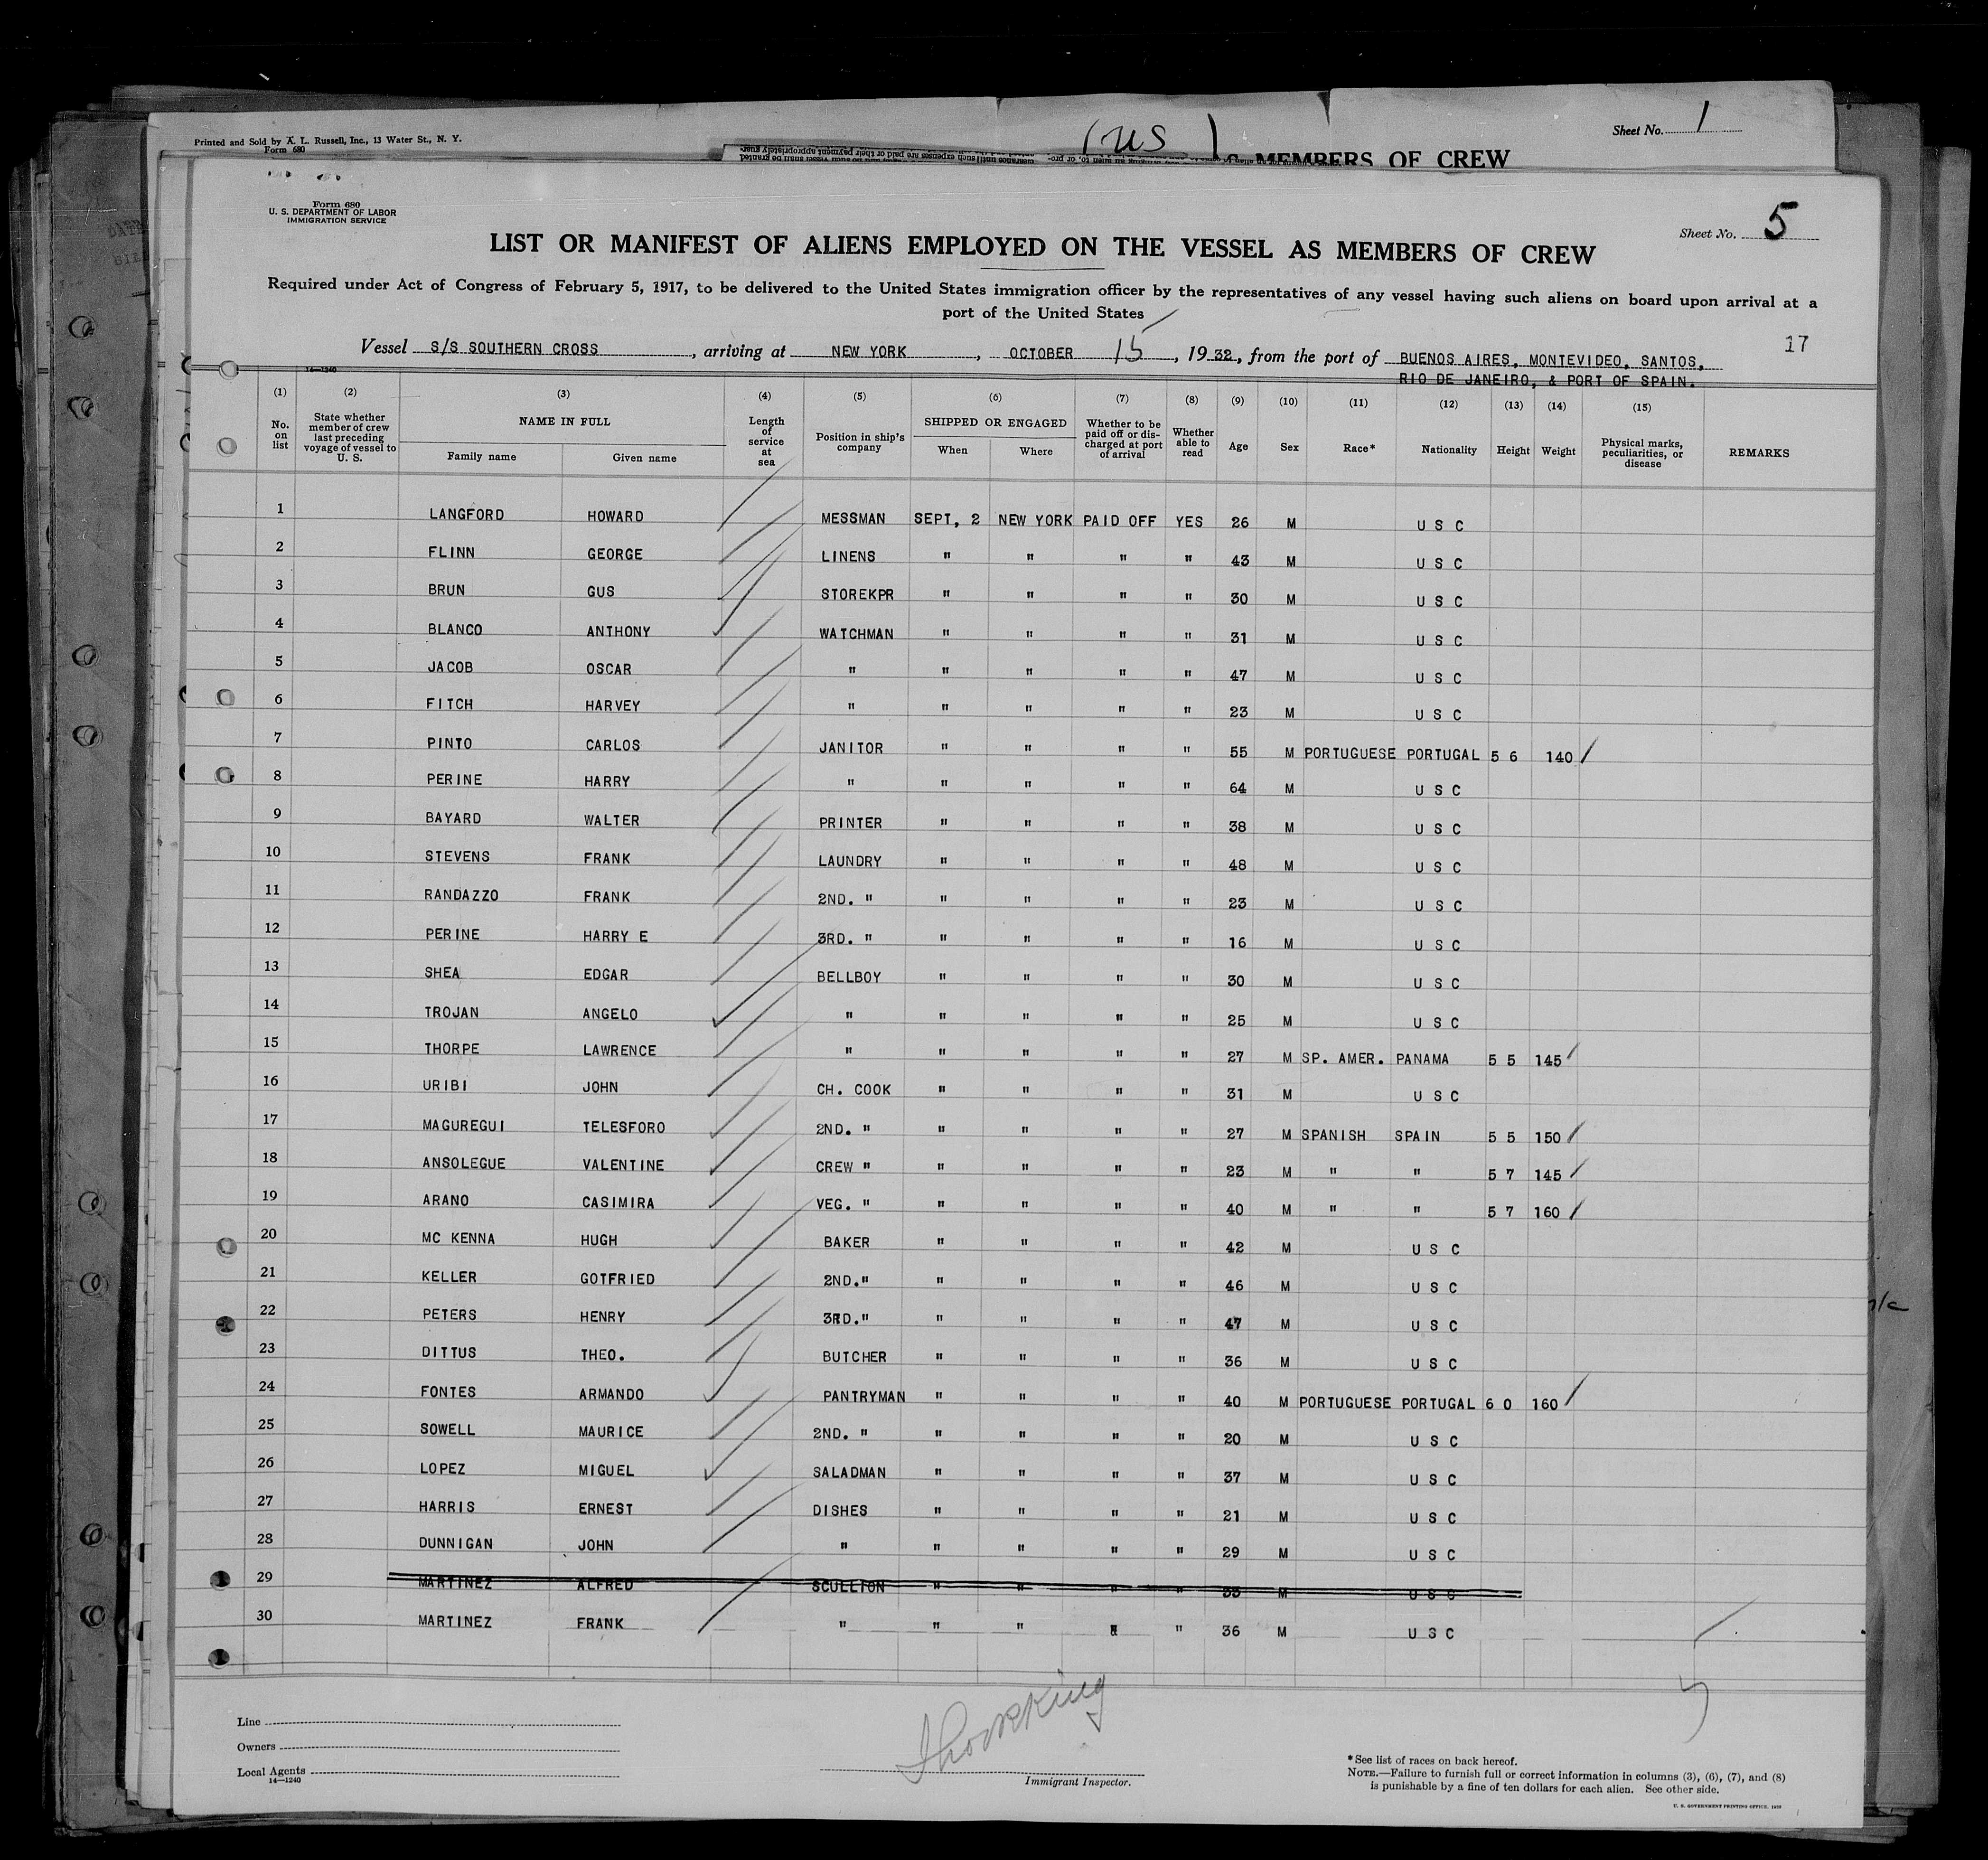 Printed and Sold by A. L. Russell, Inc., 13 Water St., N. Y.
Form 680
(US)
Sheet No. 1
MEMBERS OF CREW
Form 680
U. S. DEPARTMENT OF LABOR
IMMIGRATION SERVICE
Sheet No. 5
LIST OR MANIFEST OF ALIENS EMPLOYED ON THE VESSEL AS MEMBERS OF CREW
Required under Act of Congress of February 5, 1917, to be delivered to the United States immigration officer by the representatives of any vessel having such aliens on board upon arrival at a
port of the United States
17
Vessel S/S SOUTHERN CROSS, arriving at NEW YORK, OCTOBER 15, 1932, from the port of BUENOS AIRES, MONTEVIDEO, SANTOS,
RIO DE JANEIRO, & PORT OF SPAIN.
14—1240
(1) No. on list (2) State whether member of crew last preceding voyage of vessel to U. S. (3) NAME IN FULL Family name Given name (4) Length of service at sea (5) Position in ship's company (6) SHIPPED OR ENGAGED When Where (7) Whether to be paid off or discharged at port of arrival (8) Whether able to read (9) Age (10) Sex (11) Race* (12) Nationality (13) Height (14) Weight (15) Physical marks, peculiarities, or disease REMARKS
1 LANGFORD HOWARD MESSMAN SEPT, 2 NEW YORK PAID OFF YES 26 M U S C
2 FLINN GEORGE LINENS " " " " 43 M U S C
3 BRUN GUS STOREKPR " " " " 30 M U S C
4 BLANCO ANTHONY WATCHMAN " " " " 31 M U S C
5 JACOB OSCAR " " " " " 47 M U S C
6 FITCH HARVEY " " " " " 23 M U S C
7 PINTO CARLOS JANITOR " " " " 55 M PORTUGUESE PORTUGAL 5 6 140
8 PERINE HARRY " " " " " 64 M U S C
9 BAYARD WALTER PRINTER " " " " 38 M U S C
10 STEVENS FRANK LAUNDRY " " " " 48 M U S C
11 RANDAZZO FRANK 2ND. " " " " " 23 M U S C
12 PERINE HARRY E 3RD. " " " " " 16 M U S C
13 SHEA EDGAR BELLBOY " " " " 30 M U S C
14 TROJAN ANGELO " " " " " 25 M U S C
15 THORPE LAWRENCE " " " " " 27 M SP. AMER. PANAMA 5 5 145
16 URIBI JOHN CH. COOK " " " " 31 M U S C
17 MAGUREGUI TELESFORO 2ND. " " " " " 27 M SPANISH SPAIN 5 5 150
18 ANSOLEGUE VALENTINE CREW " " " " " 23 M " " 5 7 145
19 ARANO CASIMIRA VEG. " " " " " 40 M " " 5 7 160
20 MC KENNA HUGH BAKER " " " " 42 M U S C
21 KELLER GOTFRIED 2ND." " " " " 46 M U S C
22 PETERS HENRY 3RD." " " " " 47 M U S C
23 DITTUS THEO. BUTCHER " " " " 36 M U S C
24 FONTES ARMANDO PANTRYMAN " " " " 40 M PORTUGUESE PORTUGAL 6 0 160
25 SOWELL MAURICE 2ND. " " " " " 20 M U S C
26 LOPEZ MIGUEL SALADMAN " " " " 37 M U S C
27 HARRIS ERNEST DISHES " " " " 21 M U S C
28 DUNNIGAN JOHN " " " " " 29 M U S C
29 MARTINEZ ALFRED SCULLION " " " " 33 M U S C
30 MARTINEZ FRANK " " " " " 36 M U S C
Line
Owners
Local Agents
14—1240
Immigrant Inspector.
*See list of races on back hereof.
NOTE.—Failure to furnish full or correct information in columns (3), (6), (7), and (8)
is punishable by a fine of ten dollars for each alien. See other side.
U. S. GOVERNMENT PRINTING OFFICE